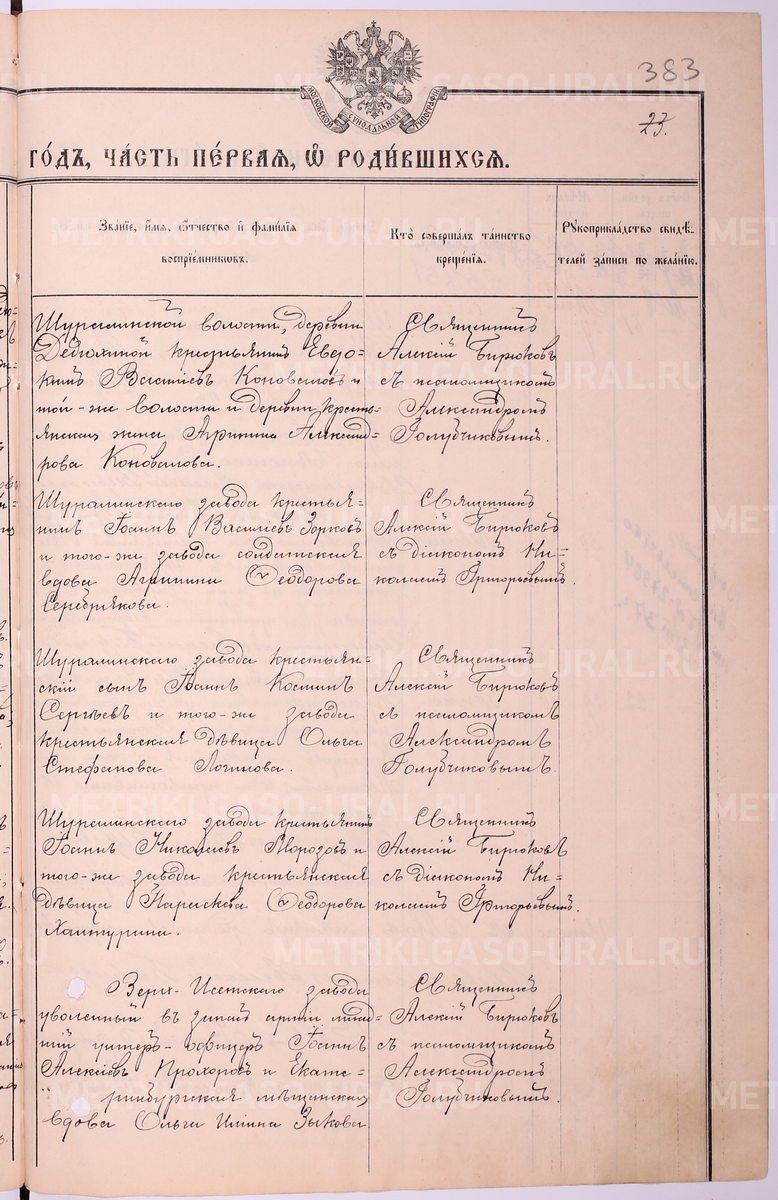 383
МОСКОВСКОЙ СѴНОДАЛЬНОЙ ТИПОГРАФІИ
23.
ГО́ДЪ, ЧА́СТЬ ПЕ́РВАЯ, Ѡ҆ РОДИ́ВШИХСЯ.
Зва́нїе, и҆́мя, ѻ҆́тчество и҆ фами́лїя
воспрїе́мникѡвъ.
Кто̀ соверша́лъ та́инство
креще́нїя.
Рꙋкоприкла́дство свидѣ́-
телей за́писи по жела́нїю.
Шуралинской волости, деревни
Дедюхиной крестьянинъ Евдо-
кимъ Васильевъ Коноваловъ и
той-же волости и деревни кресть-
янская жена Агрипина Александ-
рова Коновалова.
Священникъ
Алексій Бирюковъ
съ псаломщикомъ
Александромъ
Голубчиковымъ.
Шуралинскаго завода крестья-
нинъ Іоаннъ Васильевъ Зорковъ
и того-же завода солдатская
вдова Агрипина Ѳеодорова
Серебрякова.
Священникъ
Алексій Бирюковъ
съ діакономъ Ни-
колаемъ Григорьевымъ.
Шуралинскаго завода крестьян-
скій сынъ Іоаннъ Косминъ
Сергѣевъ и того-же завода
крестьянская дѣвица Ольга
Стефанова Логинова.
Священникъ
Алексій Бирюковъ
съ псаломщикомъ
Александромъ
Голубчиковымъ.
Шуралинскаго завода крестьянинъ
Іоаннъ Николаевъ Морозовъ и
того-же завода крестьянская
дѣвица Параскева Ѳеодорова
Хантурина.
Священникъ
Алексій Бирюковъ
съ діакономъ Ни-
колаемъ Григорьевымъ.
Верх-Исетскаго завода
уволенный въ запасъ арміи млад-
шій унтеръ-офицеръ Іоаннъ
Алексіевъ Прохоровъ и Екате-
ринбургская мѣщанская
вдова Ольга Ильина Зыкова
Священникъ
Алексій Бирюковъ
съ псаломщикомъ
Александромъ
Голубчиковымъ.
METRIKI.GASO-URAL.RU